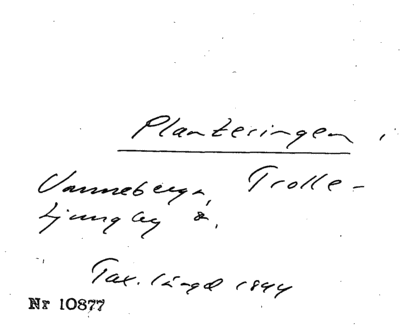 Planteringen,
Vanneberga, Trolle-
Ljungby s.
Tax. längd 1944
Nr 10877